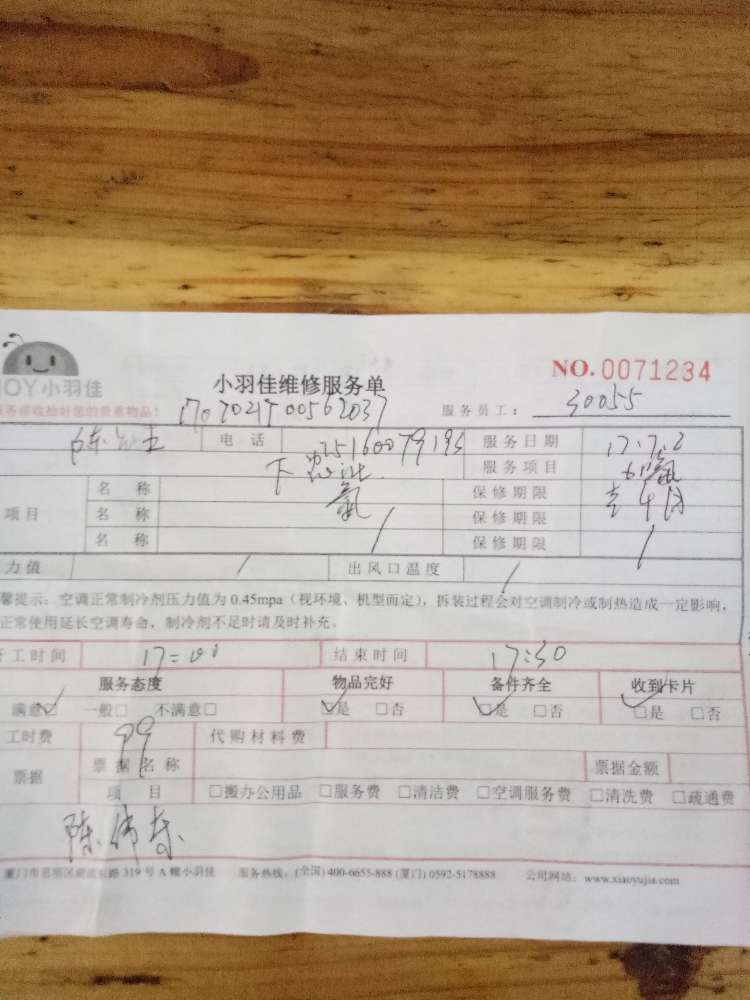 JOY小羽佳
小羽佳维修服务单
NO.0071234
1707021700562037
服务员工： 30055
陈 电话 服务日期 17.7.2
服务项目
名称 氟 保修期限
项目 名称 保修期限
名称 保修期限
力值 / 出风口温度 /
馨提示：空调正常制冷剂压力值为 0.45mpa（视环境、机型而定），拆装过程会对空调制冷或制热造成一定影响，
正常使用延长空调寿命、制冷剂不足时请及时补充。
工时间 17:00 结束时间 17:30
服务态度 物品完好 备件齐全 收到卡片
满意☑ 一般□ 不满意□ ☑是 □否 ☑是 □否 ☑是 □否
工时费 99 代购材料费
票据 票据名称 票据金额
项目 □搬办公用品 □服务费 □清洁费 □空调服务费 □清洗费 □疏通费
陈伟
厦门市思明区 路 319 号 A 幢小羽佳 服务热线：(全国) 400-6655-888 (厦门) 0592-5178888 公司网站：www.xiaoyujia.com